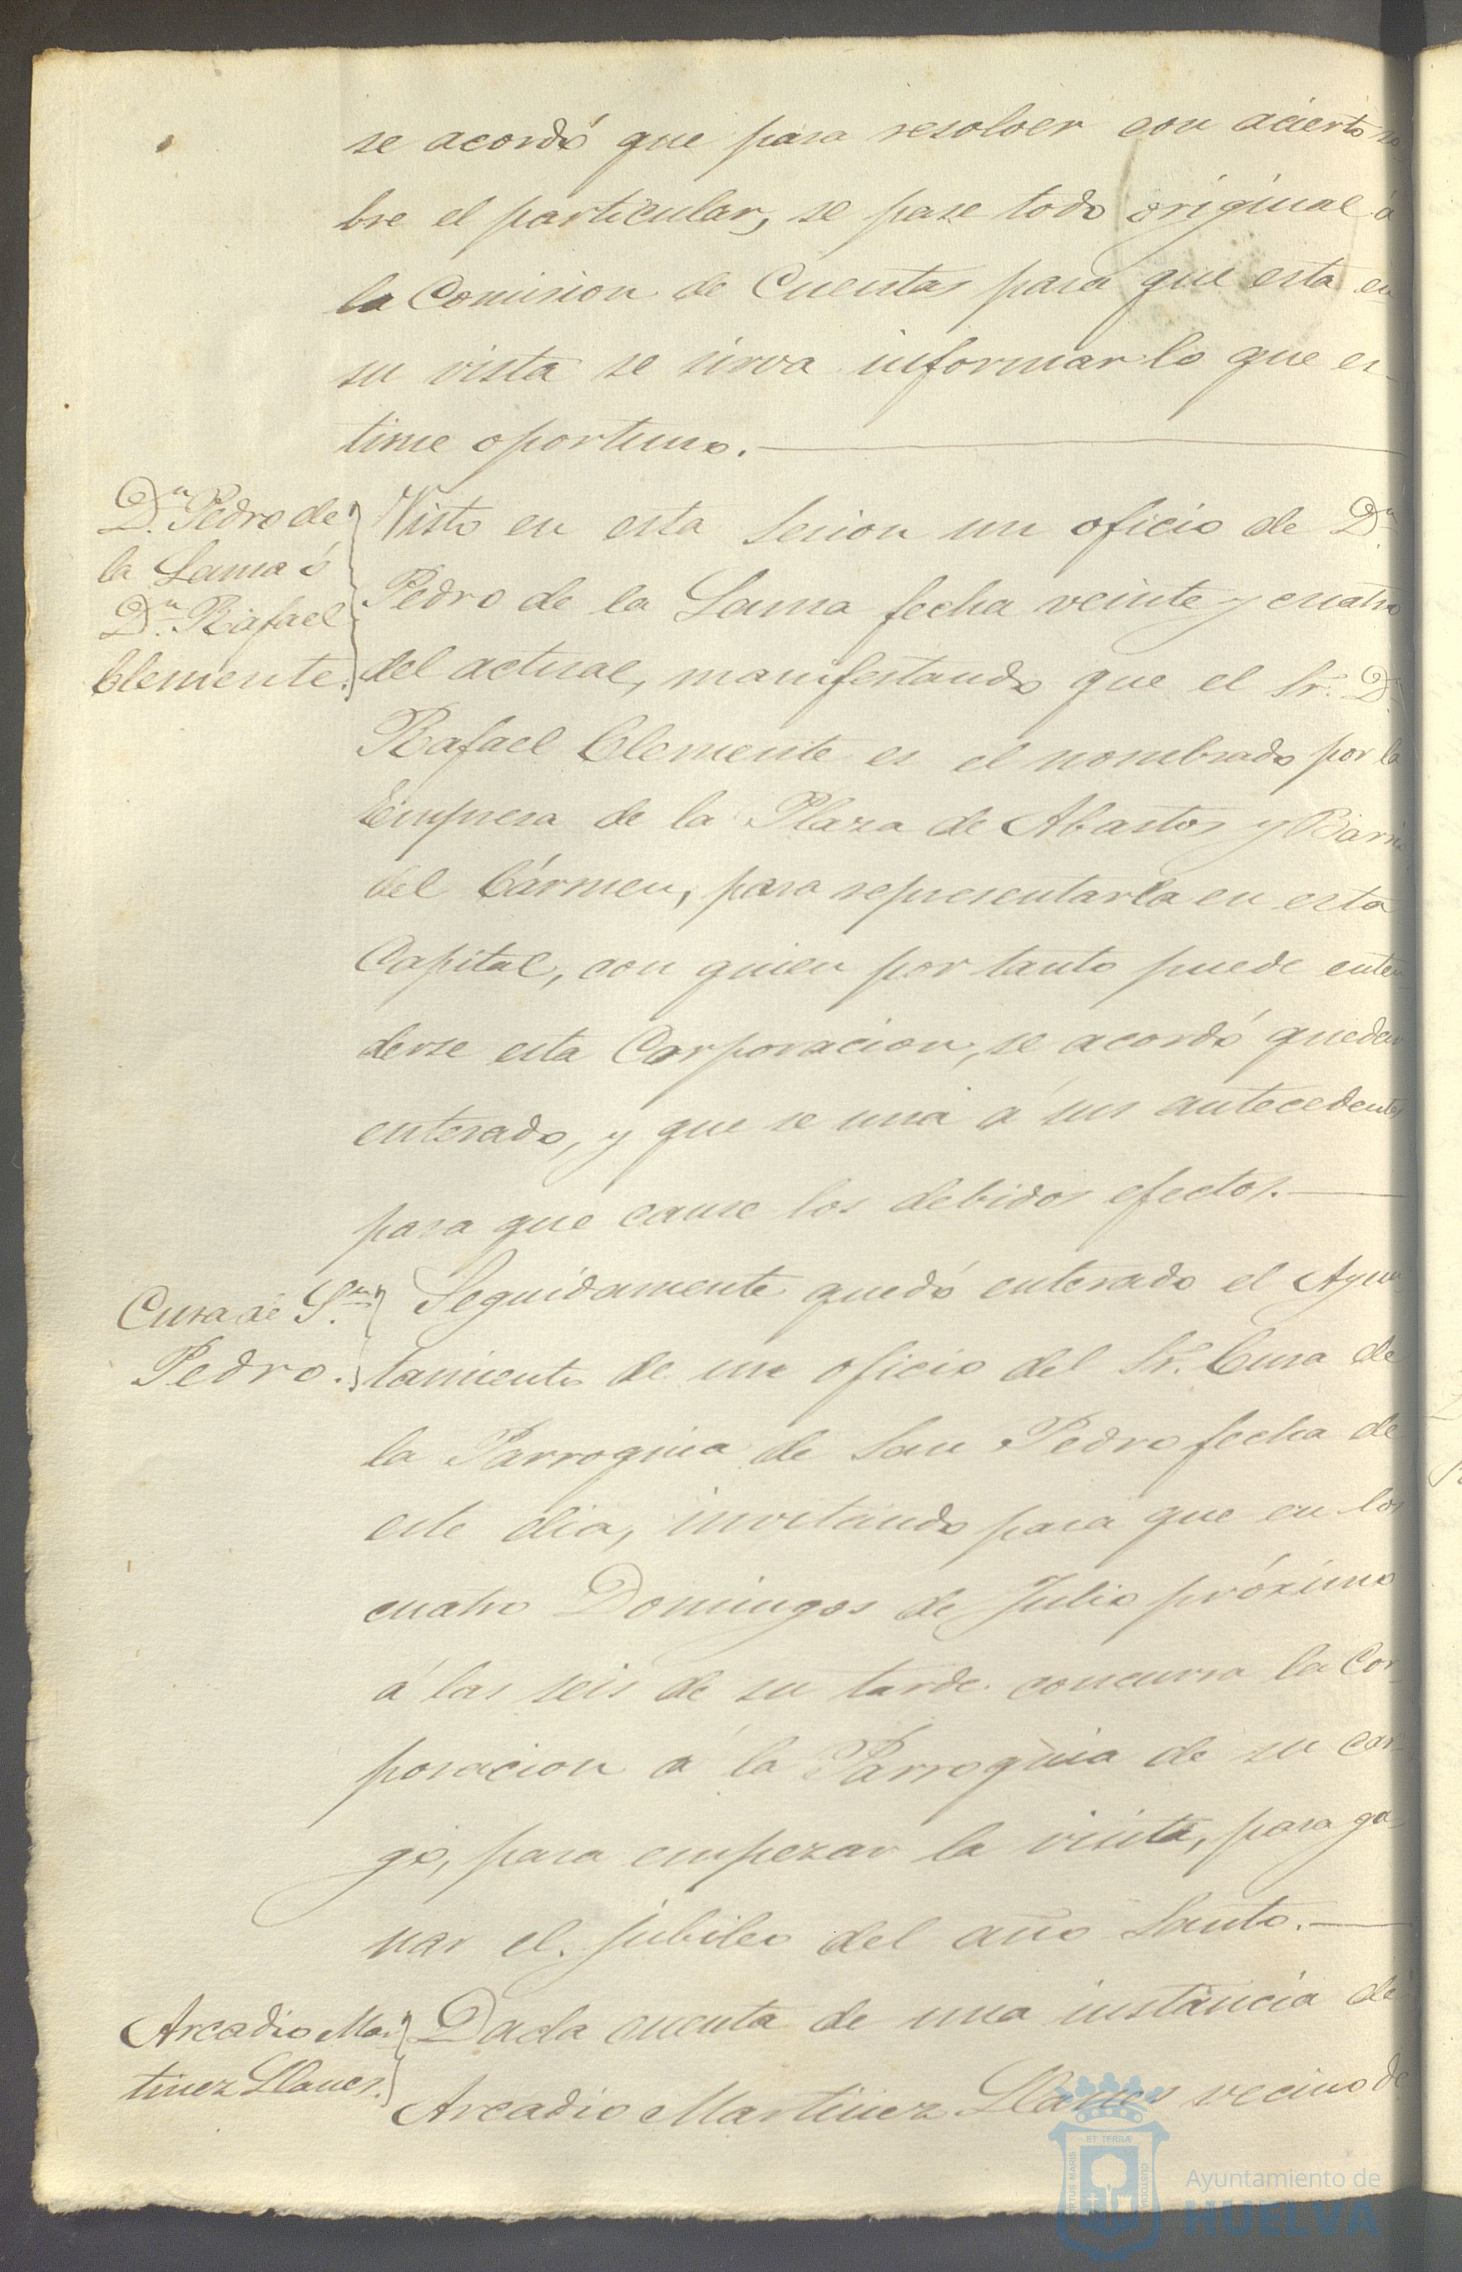 se acordó que para resolver con acierto so
bre el particular, se pase todo original á
la Comision de Cuentas para que esta en
su vista se sirva informar lo que es-
time oportuno.
Dn. Pedro de
la Lama ó
Dn. Rafael
Clemente.
Visto en esta Sesion un oficio de Dn.
Pedro de la Lama fecha veinte y cuatro
del actual, manifestando que el Sr. Dn.
Rafael Clemente es el nombrado por la
Empresa de la Plaza de Abastos y Barrio
del Cármen, para representarla en esta
Capital, con quien por tanto puede enten
derse esta Corporacion, se acordó quedar
enterado, y que se una á sus antecedentes
para que cause los debidos efectos.
Cura de Sn.
Pedro.
Seguidamente quedó enterado el Ayun
tamiento de un oficio del Sr. Cura de
la Parroquia de San Pedro fecha de
este dia, invitando para que en los
cuatro Domingos de Julio próximo
á las seis de su tarde concurra la Cor-
poracion á la Parroquia de su car-
go, para empezar la visita, para ga
nar el jubileo del año Santo.
Arcadio Mar
tinez Llanes.
Dada cuenta de una instáncia de
Arcadio Martinez Llanes vecino de
ET TERRÆ
PORTUS MARIS
CUSTODIA
Ayuntamiento de
HUELVA